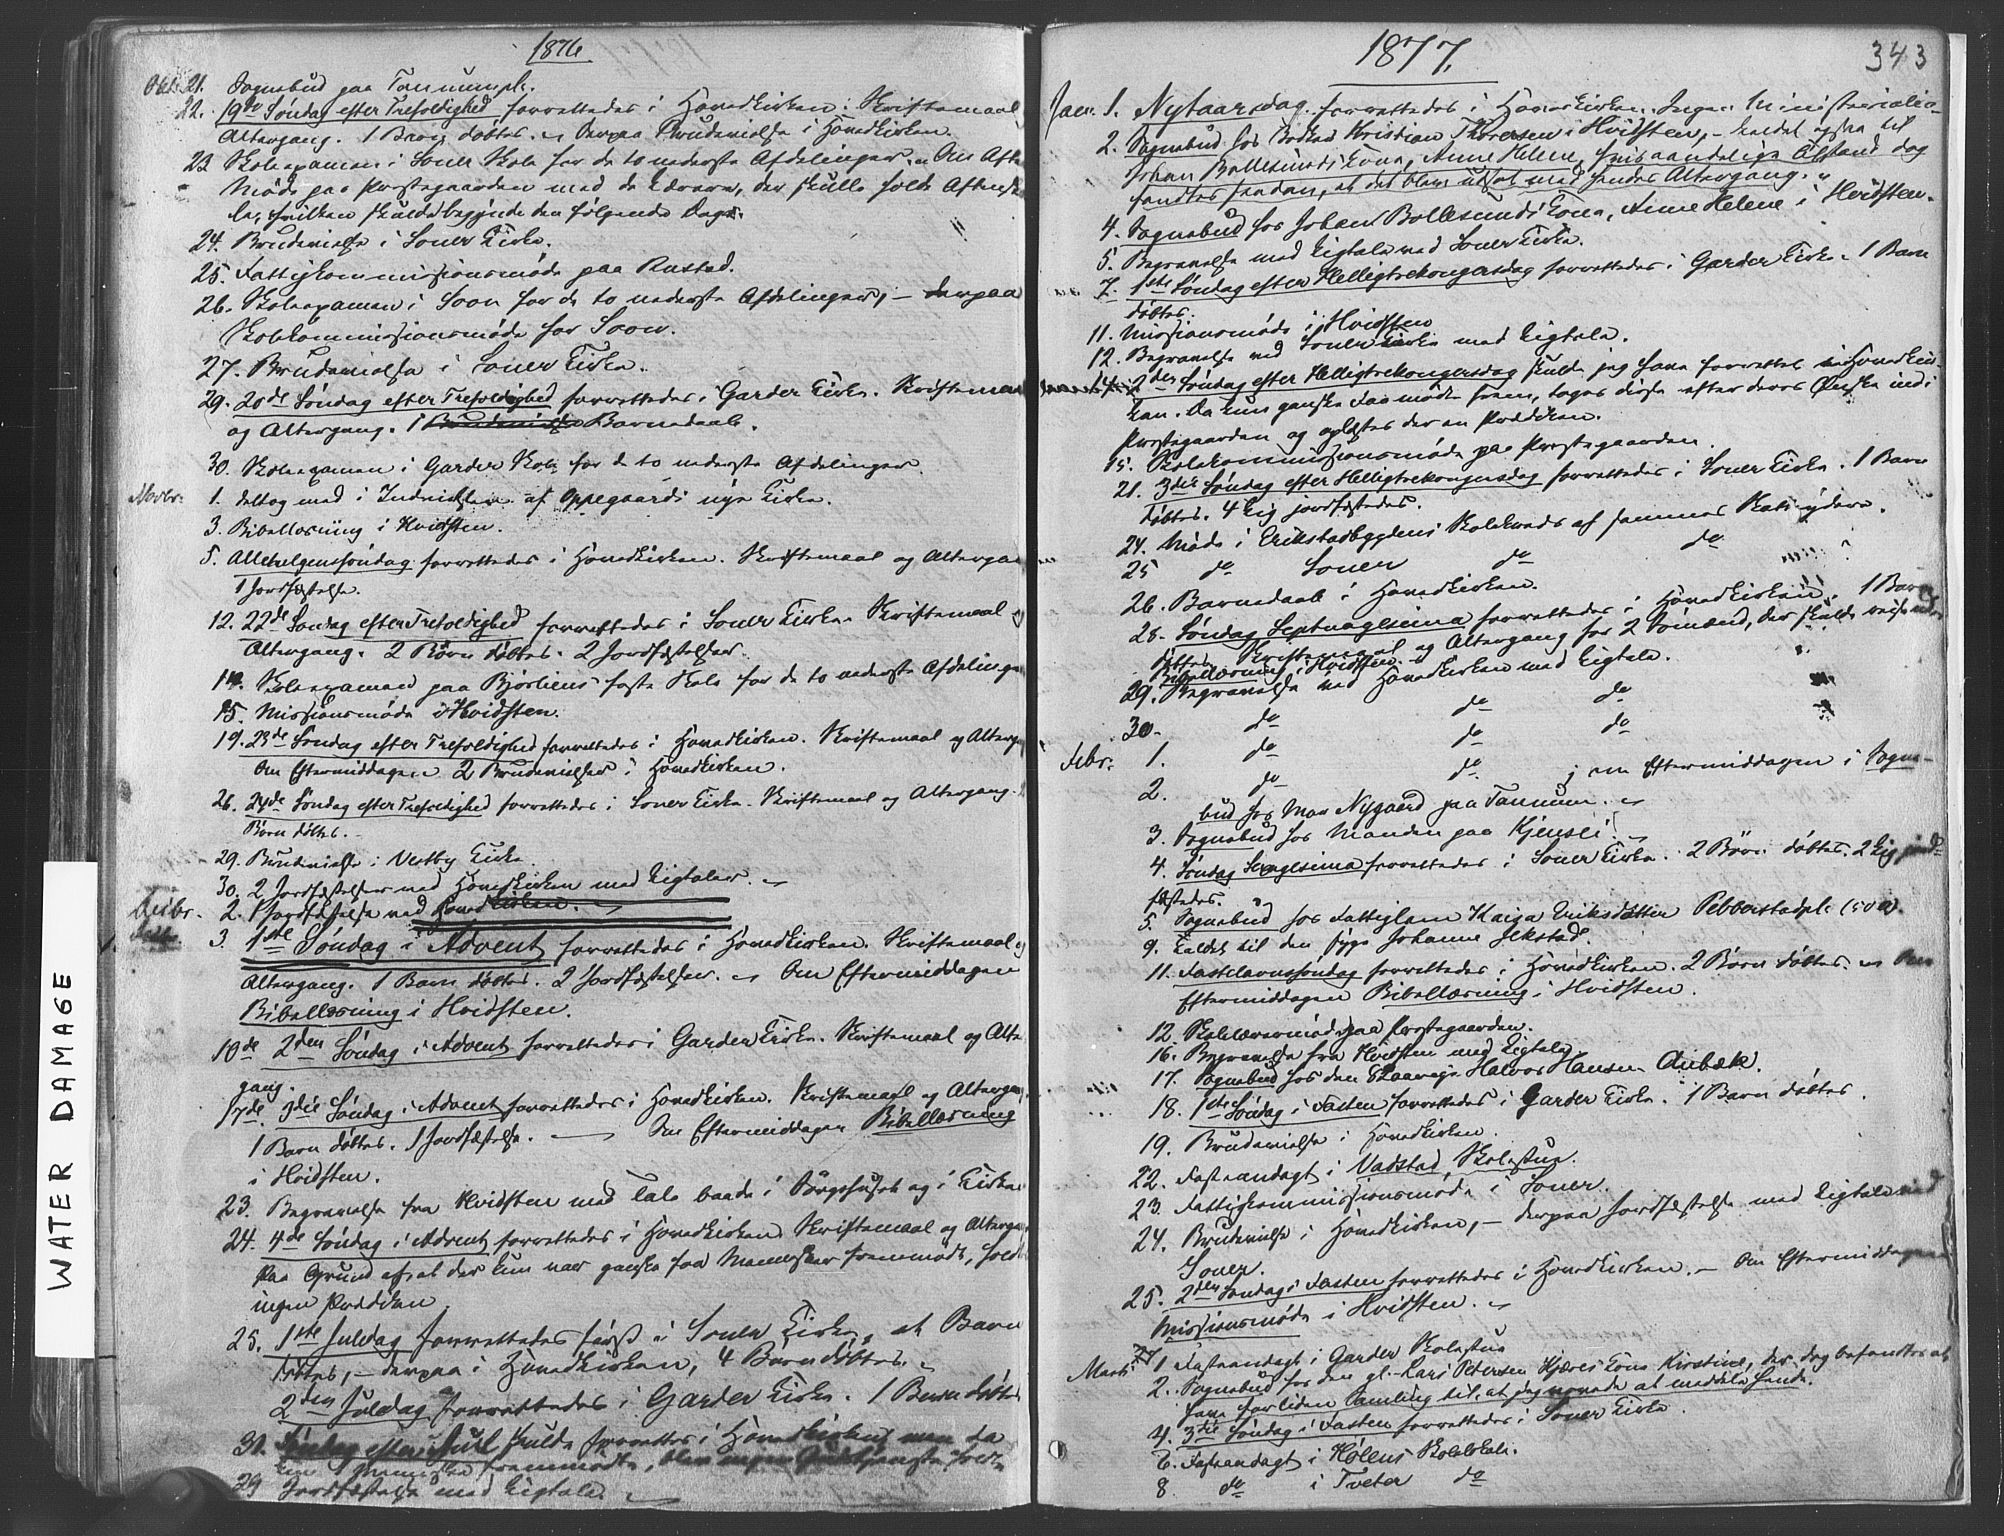 WATER DAMAGE
1876.
Oktr. 21. Sognebud paa Tannumpl.
22. 19de Søndag efter Trefoldighed forrettedes i Hovedkirken. Skriftemaal
Altergang. 1 Barn døbtes. Derpaa Brudevielse i Hovedkirken.
23 Skoleexamen i Soner Skole for de to nederste Afdelinger. Om Afte
Møde paa Præstegaarden med de Lærere, der skulle holde Aftensko
le, hvilken skulde begynde den følgende Dag.
24. Brudevielse i Soner Kirke.
25. Fattigkommissionsmøde paa Rustad.
26. Skoleexamen i Soon for de to nederste Afdelinger, – derpaa
Skolekommissionsmøde for Soon.
27. Brudevielse i Soner Kirke.
29. 20de Søndag efter Trefoldighed forrettedes i Garder Kirke. Skriftemaal
og Altergang. 1 Brudevielse Barnedaab.
30. Skoleexamen i Garder Skole for de to nederste Afdelinger.
Novbr. 1. deltog med i Indvielsen af Oppegaards nye Kirke.
3. Bibellæsning i Hvidsten.
5. Allehelgenssøndag forrettedes i Hovedkirken. Skriftemaal og Altergan
1 Jordfæstelse.
12. 22de Søndag efter Trefoldighed forrettedes i Soner Kirke. Skriftemaal
Altergang. 2 Børn døbtes. 2 Jordfæstelser.
14. Skoleexamen paa Bjørliens faste Skole for de to nederste Afdelinger
15. Missionsmøde i Hvidsten.
19. 23de Søndag efter Trefoldighed forrettedes i Hovedkirken. Skriftemaal og Alterga
Om Eftermiddagen 2 Brudevielser i Hovedkirken.
26. 24de Søndag efter Trefoldighed forrettedes i Soner Kirke. Skriftemaal og Altergang.
Børn døbtes.
29. Brudevielse i Vestby Kirke.
30. 2 Jordfæstelser ved Hovedkirken med Ligtaler.
Decbr. 2. 1 Jordfæstelse ved Hovedkirken.
3. 1ste Søndag i Advent forrettedes i Hovedkirken. Skriftemaal og
Altergang. 1 Barn døbtes. 2 Jordfæstelser. Om Eftermiddagen
Bibellæsning i Hvidsten.
10de 2den Søndag i Advent forrettedes i Garder Kirke. Skriftemaal og Alter
gang.
17de. 3die Søndag i Advent forrettedes i Hovedkirken. Skriftemaal og Altergan
1 Barn døbtes. 1 Jordfæstelse. — Om Eftermiddagen Bibellæsning
i Hvidsten.
23. Begravelse fra Hvidsten med Tale baade i Sørgehuset og i Kirken
24. 4de Søndag i Advent forrettedes i Hovedkirken Skriftemaal og Alterga
Paa Grund af, at der kun var ganske faa Mennesker fremmødt, holdt
ingen Prædiken
25. 1ste Juledag forrettedes først i Soner Kirke, et Barn
døbtes, – derpaa i Hovedkirken, 4 Børn døbtes.
2den Juledag forrettedes i Garder Kirke. 1 Barn døbtes
31. Søndag efter Juul skulde forrettes i Hovedkirken, men da
kun 1 Menneske fremmødte, blev ingen Gudstjeneste holdt
29 Jordfæstelse med Ligtale.
1877. 343
Janr. 1. Nytaarsdag forrettedes i Hovedkirken. Ingen Ministerialia.
2. Sognebud hos Kristian Thoresen i Hvidsten, – kaldet ogsaa til
Johan Bollesunds Kone, Anne Helene, hvis aandelige Tilstand dog
fandtes saadan, at det blev udsat med hendes Altergang.
4. Sognebud hos Johan Bollesunds Kone, Anne Helene i Hvidsten.
5. Begravelse med Ligtale ved Soner Kirke.
7. 1ste Søndag efter Helligtrekongersdag forrettedes i Garder Kirke. 1 Barn
døbtes.
11. Missionsmøde i Hvidsten
12. Begravelse ved Soner Kirke med Ligtale.
14. 2den Søndag efter Helligtrekongersdag skulde jeg have forrettet i Hovedkir-
ken. Da kun ganske faa mødte frem, toges disse efter deres Ønske ind i
Præstegaarden og oplæstes der en Prædiken.
15. Skolekommissionsmøde paa Præstegaarden.
21. 3die Søndag efter Helligtrekongersdag forrettedes i Soner Kirke. 1 Barn
døbtes. 4 Lig jordfæstedes.
24. Møde i Erikstadbygdens Skolekreds af sammes Skatteydere.
25 do Soner do do
26. Barnedaab i Hovedkirken.
28. Søndag Septuagesima forrettedes i Hovedkirken. 1 Barn
døbtes. Skriftemaal og Altergang for 2 Sømænd, der skulde reise
Bibellæsning i Hvidsten.
29. Begravelse ved Hovedkirken med Ligtale.
30. do do do
Febr. 1. do do do
2. do do ; om Eftermiddagen i Sogne-
bud hos Mar Nygaard paa Tannum.
3. Sognebud hos Manden paa Kjensli.
4. Søndag Sexagesima forrettedes i Soner Kirke. 2 Børn døbtes. 2 Lig jord-
fæstedes.
5. Sognebud hos Fattiglem Kaisa Eriksdatter Pebberstadpl.
9. Kaldet til den syge Johanne Jekstad.
11. Fastelavnssøndag forrettedes i Hovedkirken. 2 Børn døbtes. Om
Eftermiddagen Bibellæsning i Hvidsten.
12. Skolelærermøde paa Præstegaarden.
16. Begravelse fra Hvidsten med Ligtale
17. Sognebud hos den Halvor Hansen Aubæk.
18. 1ste Søndag i Fasten forrettedes i Garder Kirke. 1 Barn døbtes.
19. Brudevielse i Hovedkirken.
22. Fasteandagt i Vadstad Skolestue.
23. Fattigkommissionsmøde i Soner.
24. Brudevielse i Hovedkirken, – derpaa Jordfæstelse med Ligtale ved
Soner.
25. 2den Søndag i Fasten forrettedes i Hovedkirken. – Om Eftermiddagen
Missionsmøde i Hvidsten.
Marts 1 Fasteandagt i Garder Skolestue
2. Sognebud hos den gl. Lars Petersen Kjæres Kone Kirstine, der dog befandtes at
have for liden Samling til, at jeg vovede at meddele hende.
4. 3die Søndag i Fasten forrettedes i Soner Kirke.
6. Fasteandagt i Hølens Skolelokale.
8 do i Tveter do